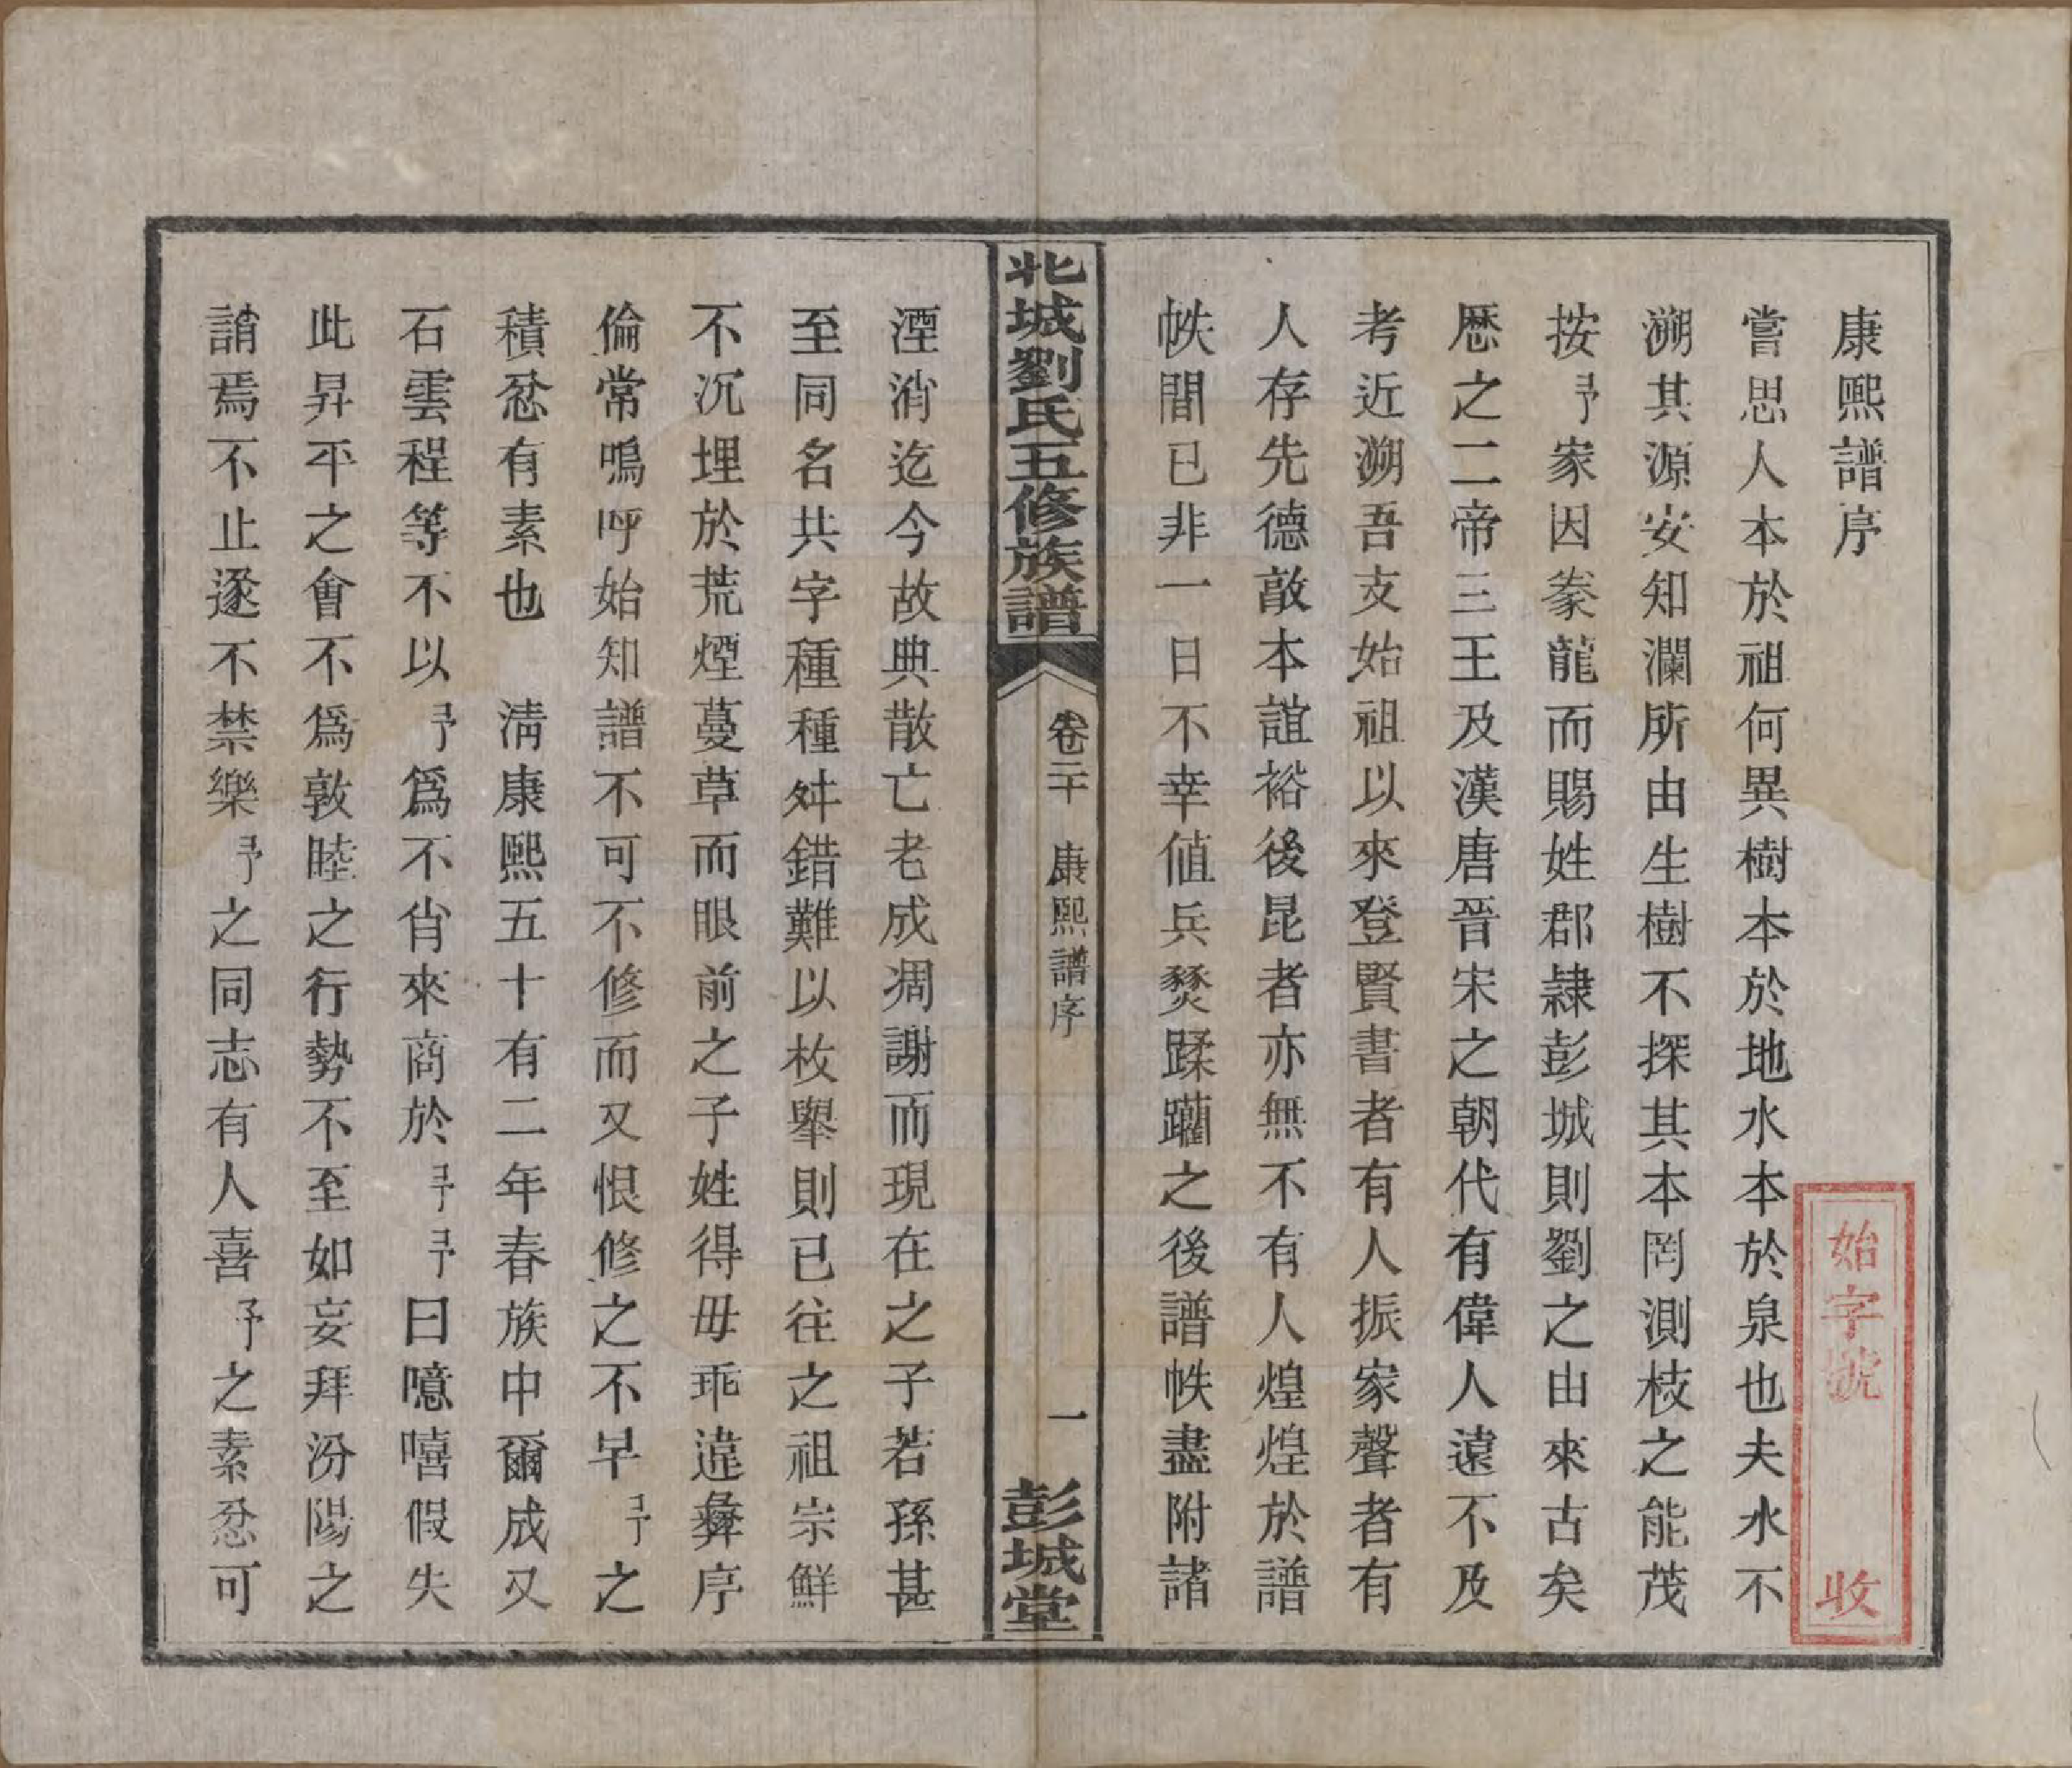 康熙譜序
嘗思人本於祖何異樹本於地水本於泉也夫水不
溯其源安知瀾所由生樹不探其本罔測枝之能茂
按予家因豢龍而賜姓郡隸彭城則劉之由來古矣
歷之二帝三王及漢唐晉宋之朝代有偉人遠不及
考近溯吾支始祖以來登賢書者有人振家聲者有
人存先德敵本誼裕後昆者亦無不有人煌煌於譜
帙間已非一日不幸値兵燹蹂躪之後譜帙盡附諸
北城劉氏五修族譜
卷二十
康熙譜序
一
彭城堂
湮消迄今故典散亡老成凋謝而現在之子若孫甚
至同名共字種種舛錯難以枚舉則已往之祖宗鮮
不沉埋於荒煙蔓草而眼前之子姓得毋乖違彝序
倫常嗚呼始知譜不可不修而又恨修之不早予之
積忿有素也　清康熙五十有二年春族中爾成又
石雲程等不以予爲不肖來商於予予曰噫嘻假失
此昇平之會不爲敦睦之行勢不至如妄拜汾陽之
誚焉不止遂不禁樂予之同志有人喜予之素忿可
始字號　收